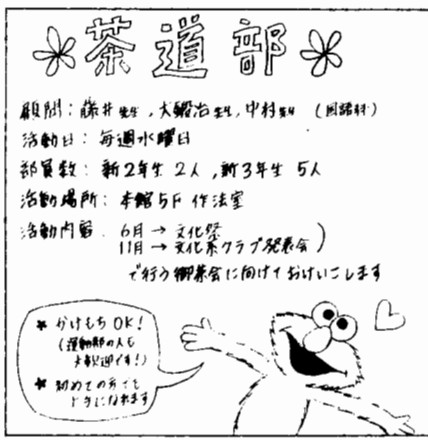 茶道部
顧問：藤井先生，大鍛治先生，中村先生 (国語科)
活動日：毎週水曜日
部員数：新2年生 2人，新3年生 5人
活動場所：本館5F 作法室
活動内容 6月→文化祭
11月→文化系クラブ発表会)
で行う御茶会に向けておけいこします
* かけもちOK!
(運動部の人も
大歓迎です!)
* 初めての方でも